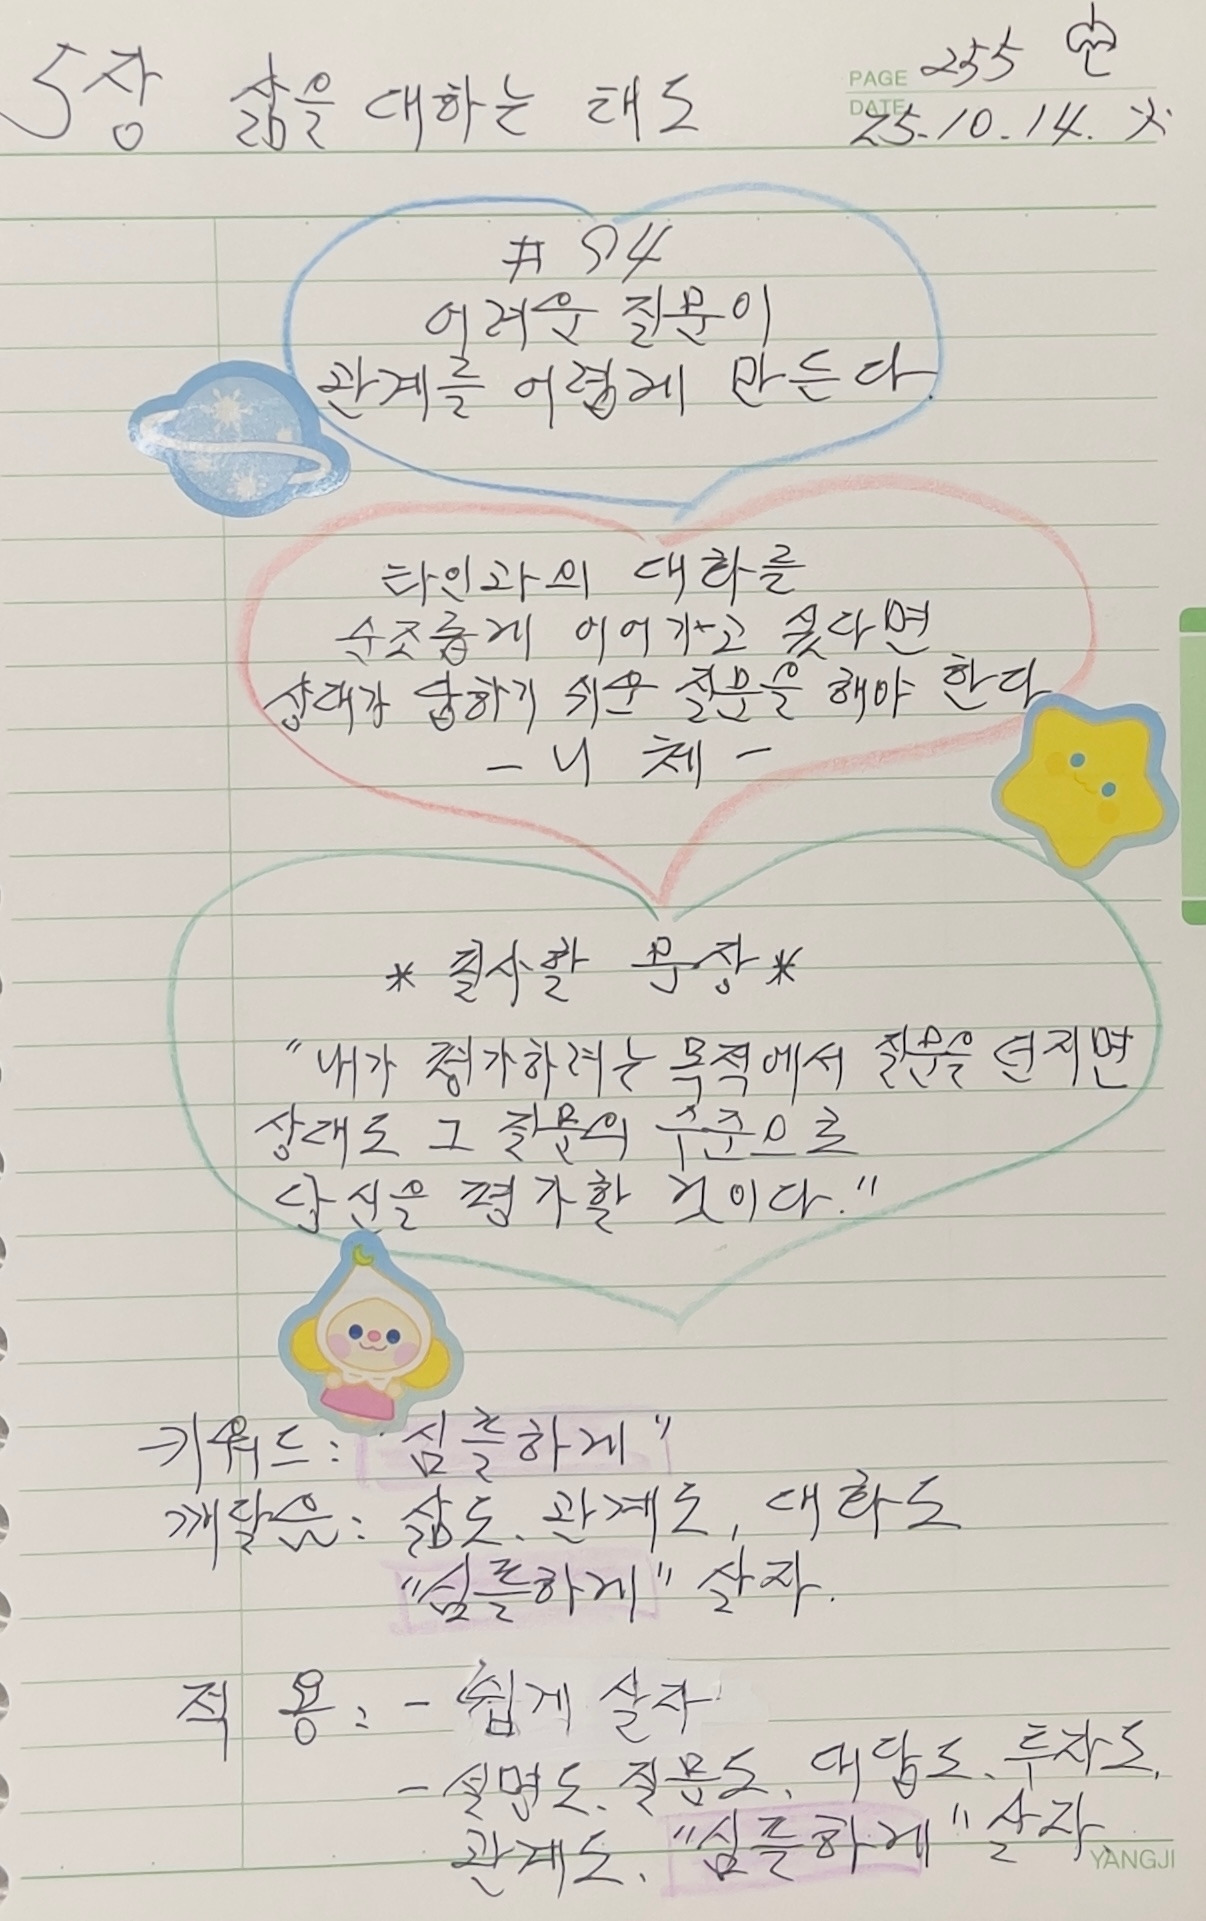 5장 삶을 대하는 태도
PAGE 255
DATE 25.10.14. 火
#94
어려운 질문이
관계를 어렵게 만든다.
타인과의 대화를
순조롭게 이어가고 싶다면
상대가 답하기 쉬운 질문을 해야 한다
- 니체 -
* 필사할 문장 *
"내가 평가하려는 목적에서 질문을 던지면
상대도 그 질문의 수준으로
당신을 평가할 것이다."
키워드: "심플하게"
깨달음: 삶도, 관계도, 대화도
"심플하게" 살자.
적용: - 쉽게 살자
- 설명도, 질문도, 대답도, 투자도,
관계도, "심플하게" 살자.
YANGJI